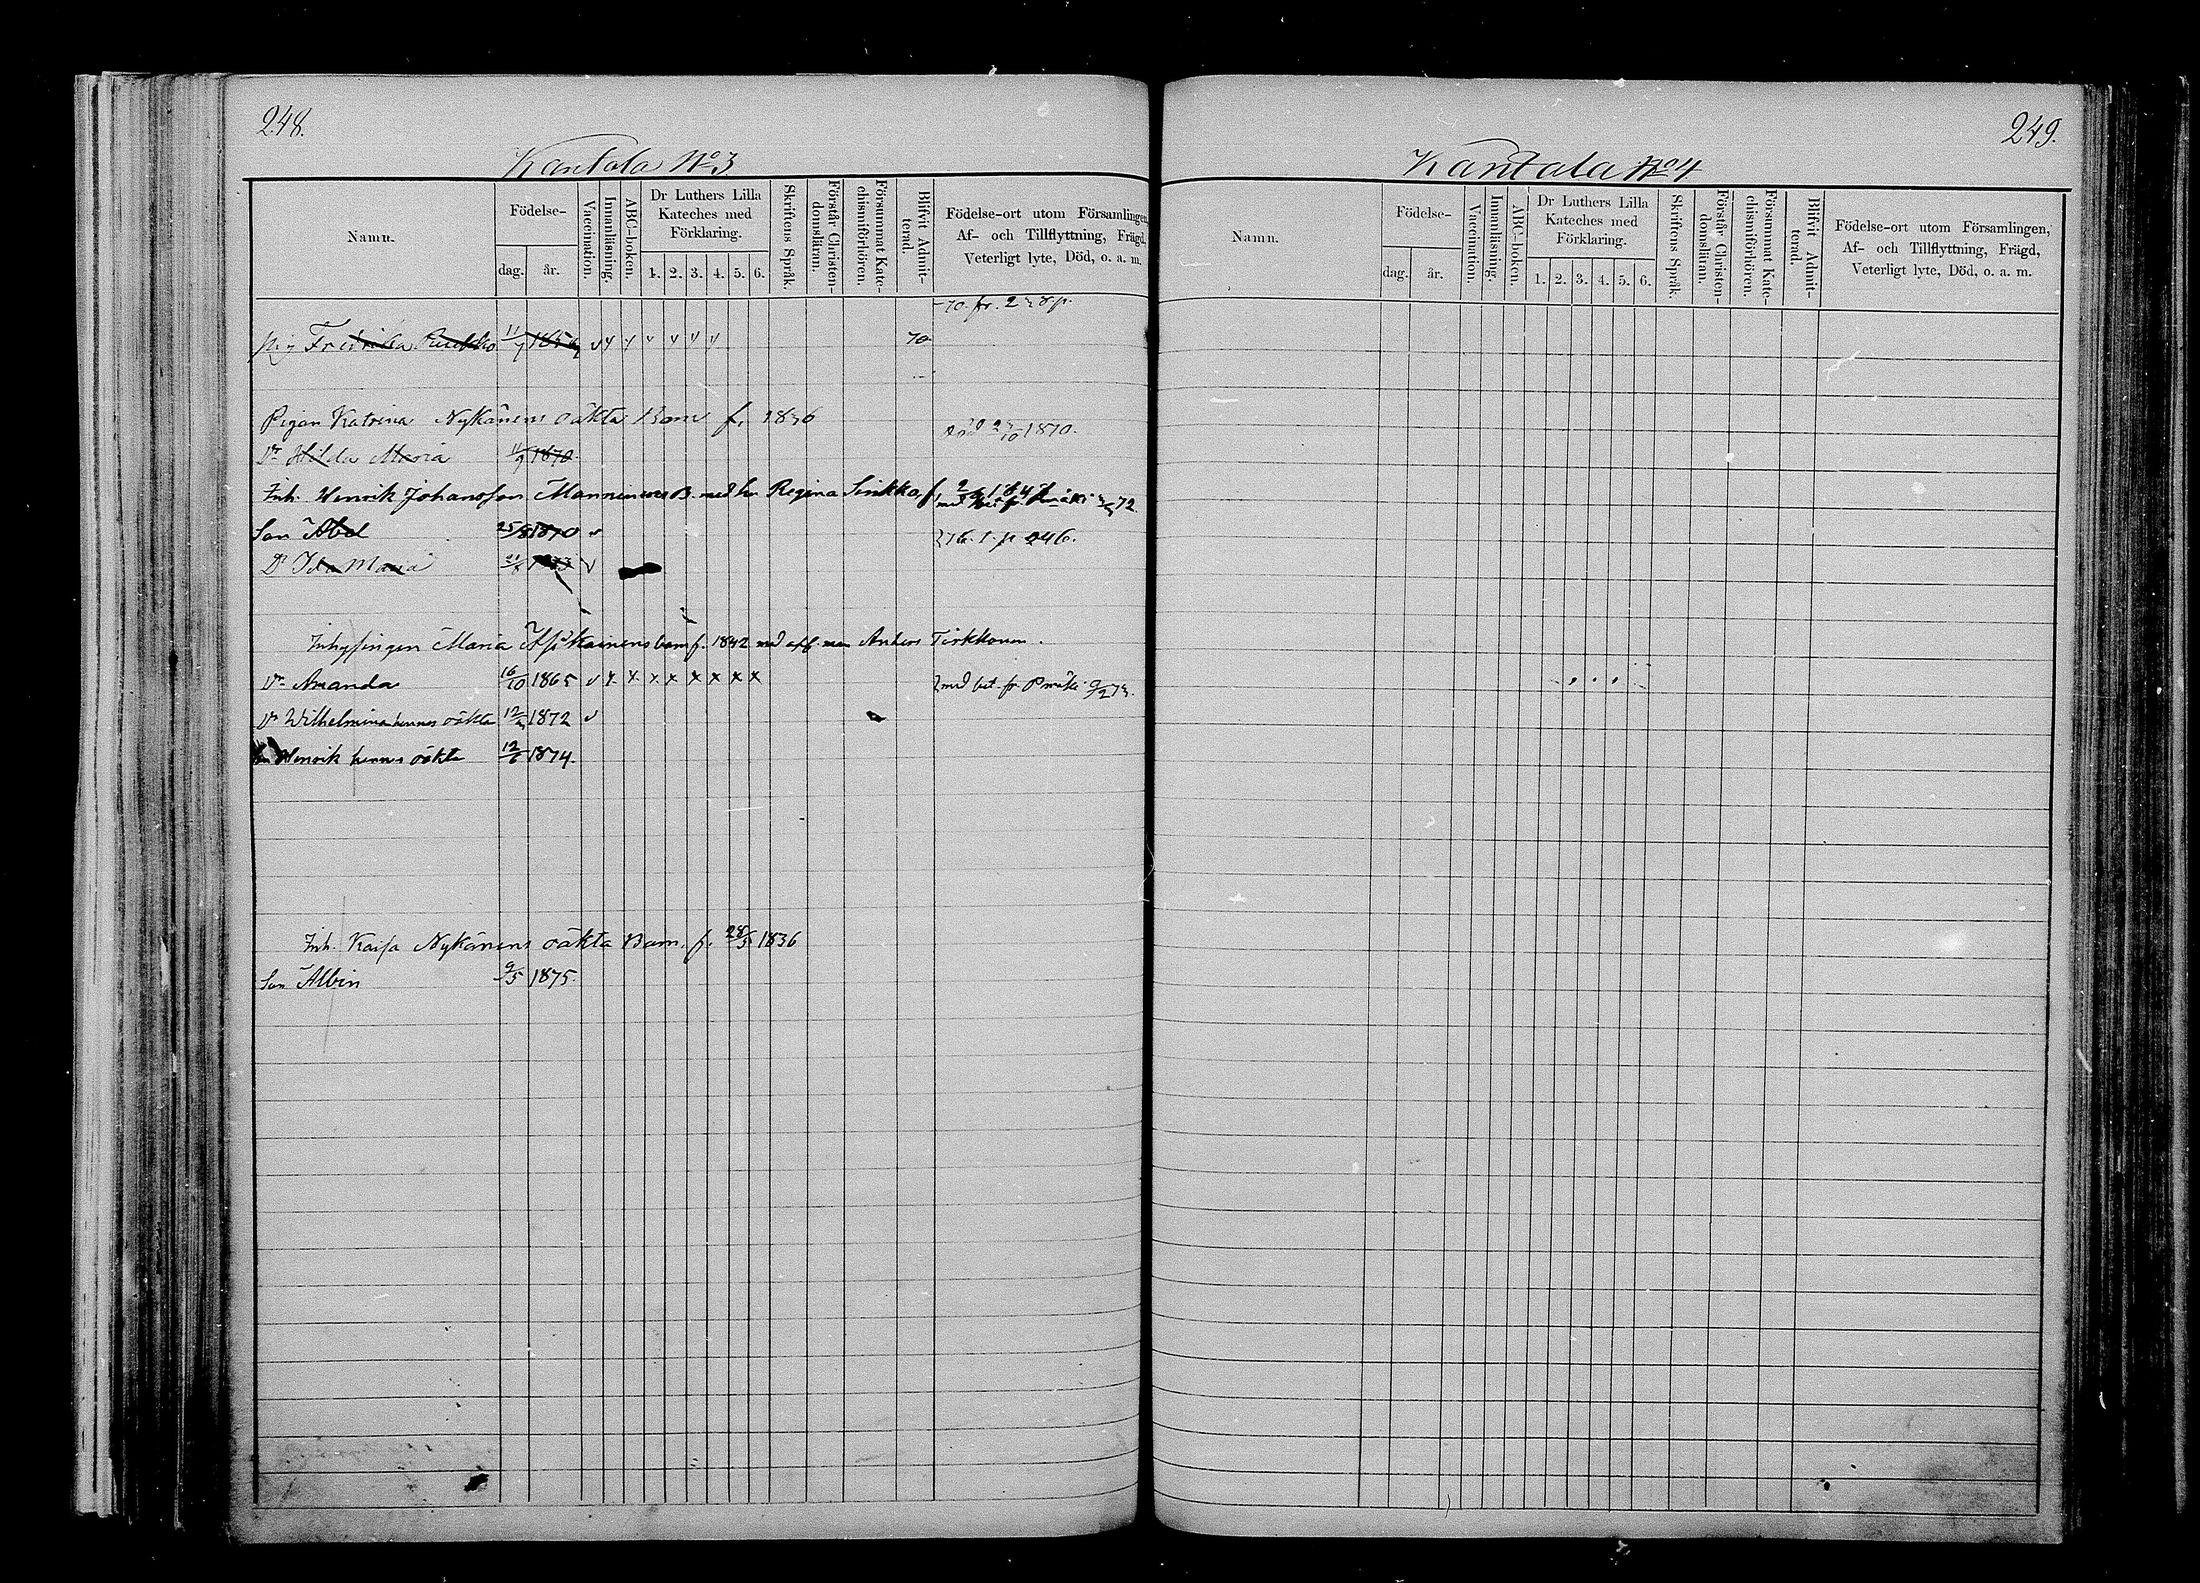 248.
Kantala No 3
Namn.
Födelse-
dag.
år.
Vaccination.
Innanläsning.
ABC-boken.
Dr Luthers Lilla
Kateches med
Förklaring.
1. 2. 3. 4. 5. 6.
Skriftens Språk.
Förstår Christen-
domsläran.
Försummat Kate-
chismiförhören.
Blifvit Admit-
terad.
Födelse-ort utom Församlingen,
Af- och Tillflyttning, Frägd,
Veterligt lyte, Död, o. a. m.
-70 fr.
Fredrika 11/9 70
Pigan Katrina Nykänens oäkta Barn f. 1836
Dr Hilda Maria 11/9 1870. Död 10 1870.
Inh. Henrik Johansson Manninens B. med hu Regina Sinkko, f.
72.
Son Abel 25/8 1870 v
76. t. p 246.
Dr Ida Maria v
Inhysingen Maria barn f. 1842 med afl. man Anders Tirkkonen.
Dr Amanda 16/10 1865 v x x x x x x x x med bet. fr. Pmäki 9/2 73.
Dr Wilhelmina hennes oäkta 1872 v
Son Henrik hennes oäkta 12/6 1874.
Inh. Kaisa Nykänens oäkta Barn. f. 28/5 1836
Son Albin 9/5 1875.
249.
Kantala No 4
Namn.
Födelse-
dag.
år.
Vaccination.
Innanläsning.
ABC-boken.
Dr Luthers Lilla
Kateches med
Förklaring.
1. 2. 3. 4. 5. 6.
Skriftens Språk.
Förstår Christen-
domsläran.
Försummat Kate-
chismiförhören.
Blifvit Admit-
terad.
Födelse-ort utom Församlingen,
Af- och Tillflyttning, Frägd,
Veterligt lyte, Död, o. a. m.